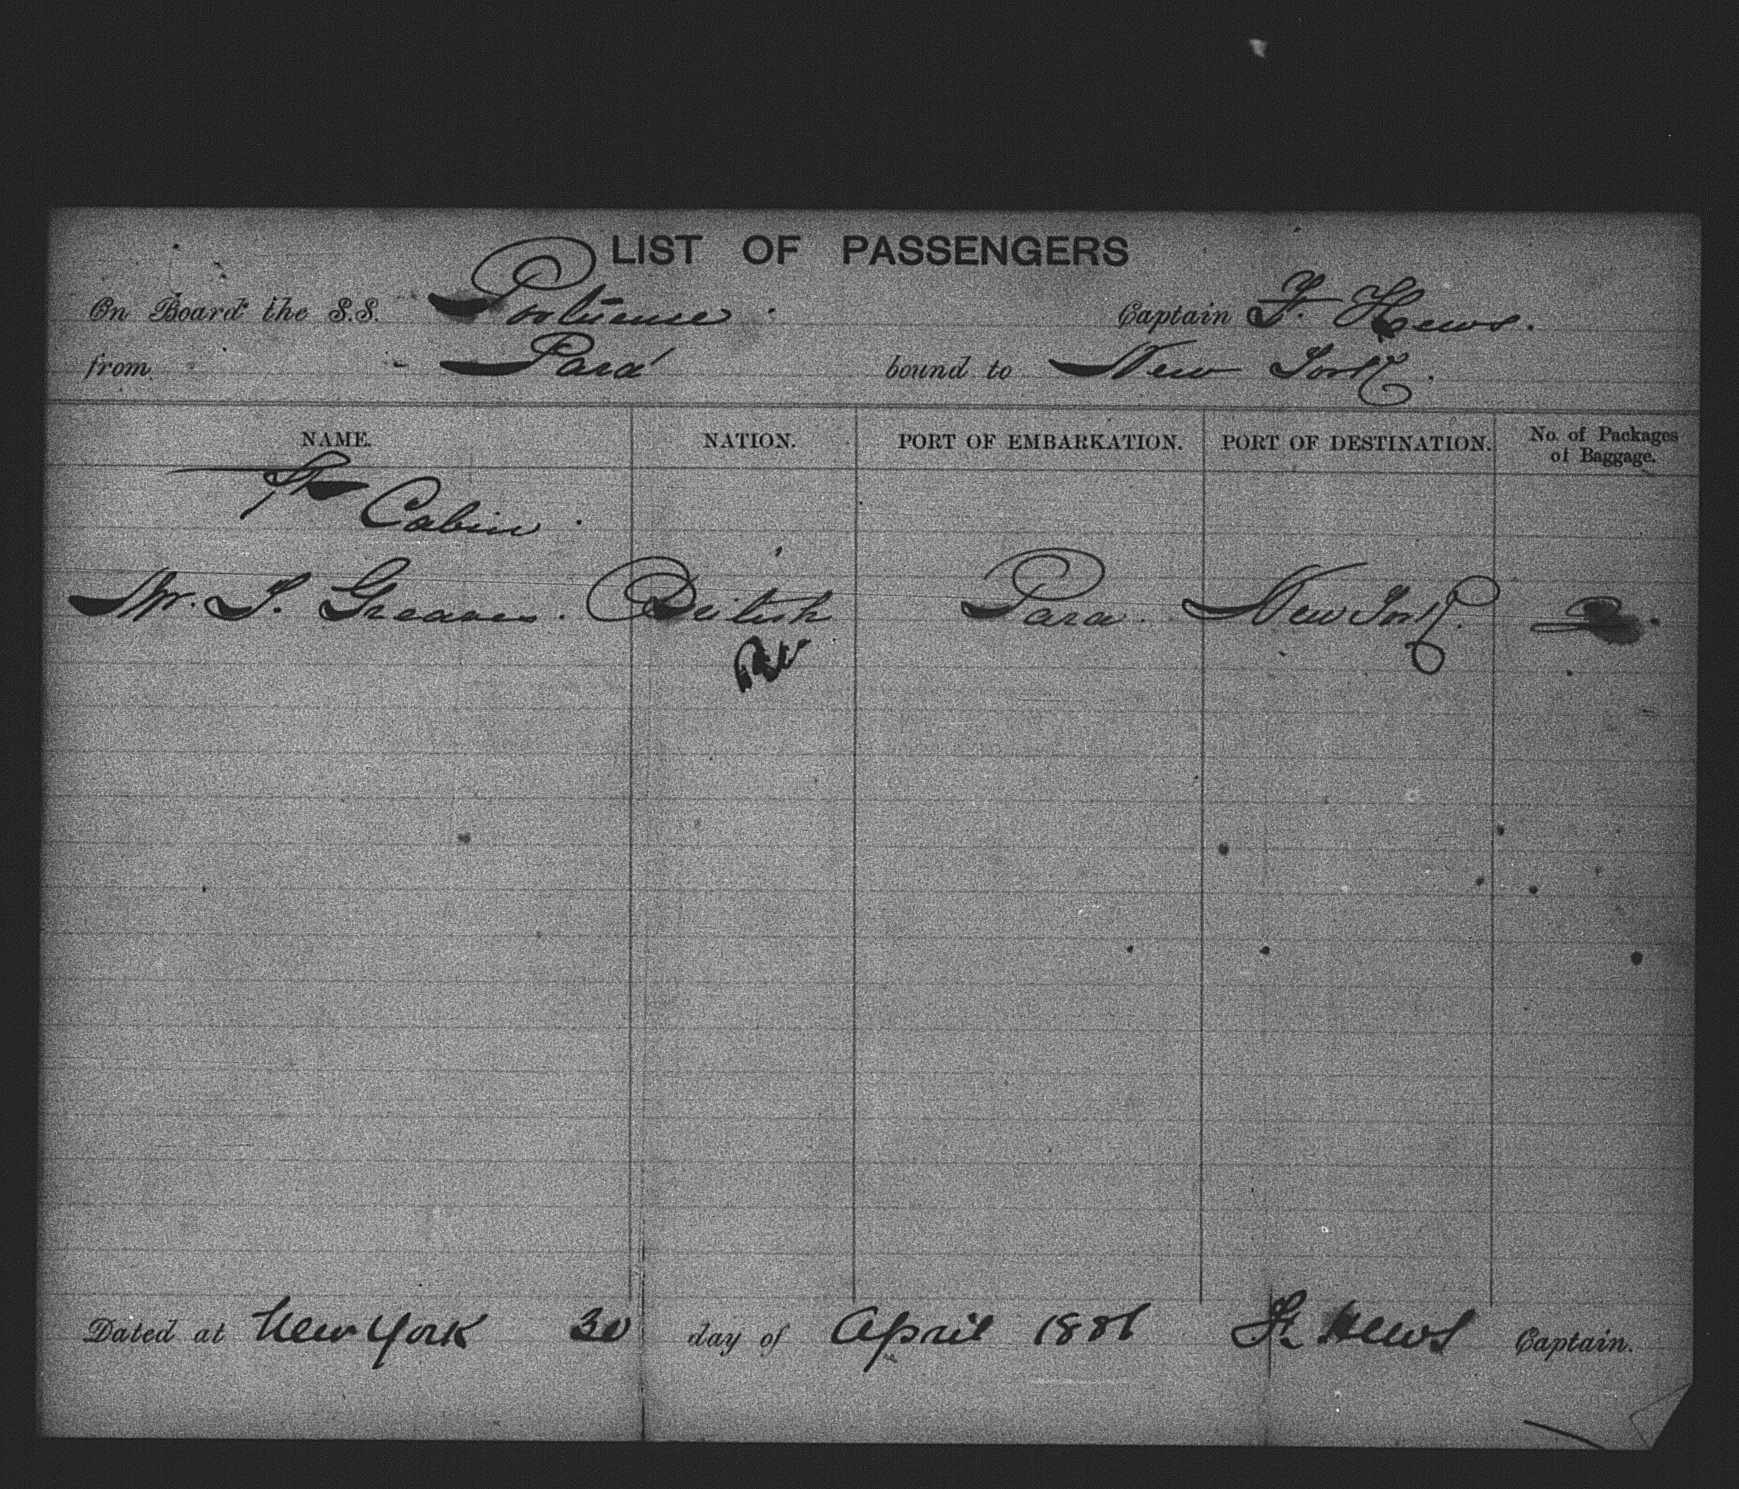 LIST OF PASSENGERS
On Board the S.S. Portuense. Captain F. Hews.
from Pará bound to New York.
NAME. NATION. PORT OF EMBARKATION. PORT OF DESTINATION. No. of Packages of Baggage.
Cabin.
Mr. Greaves. British Para. New York.
Dated at New York 30 day of April 1886 Hews Captain.